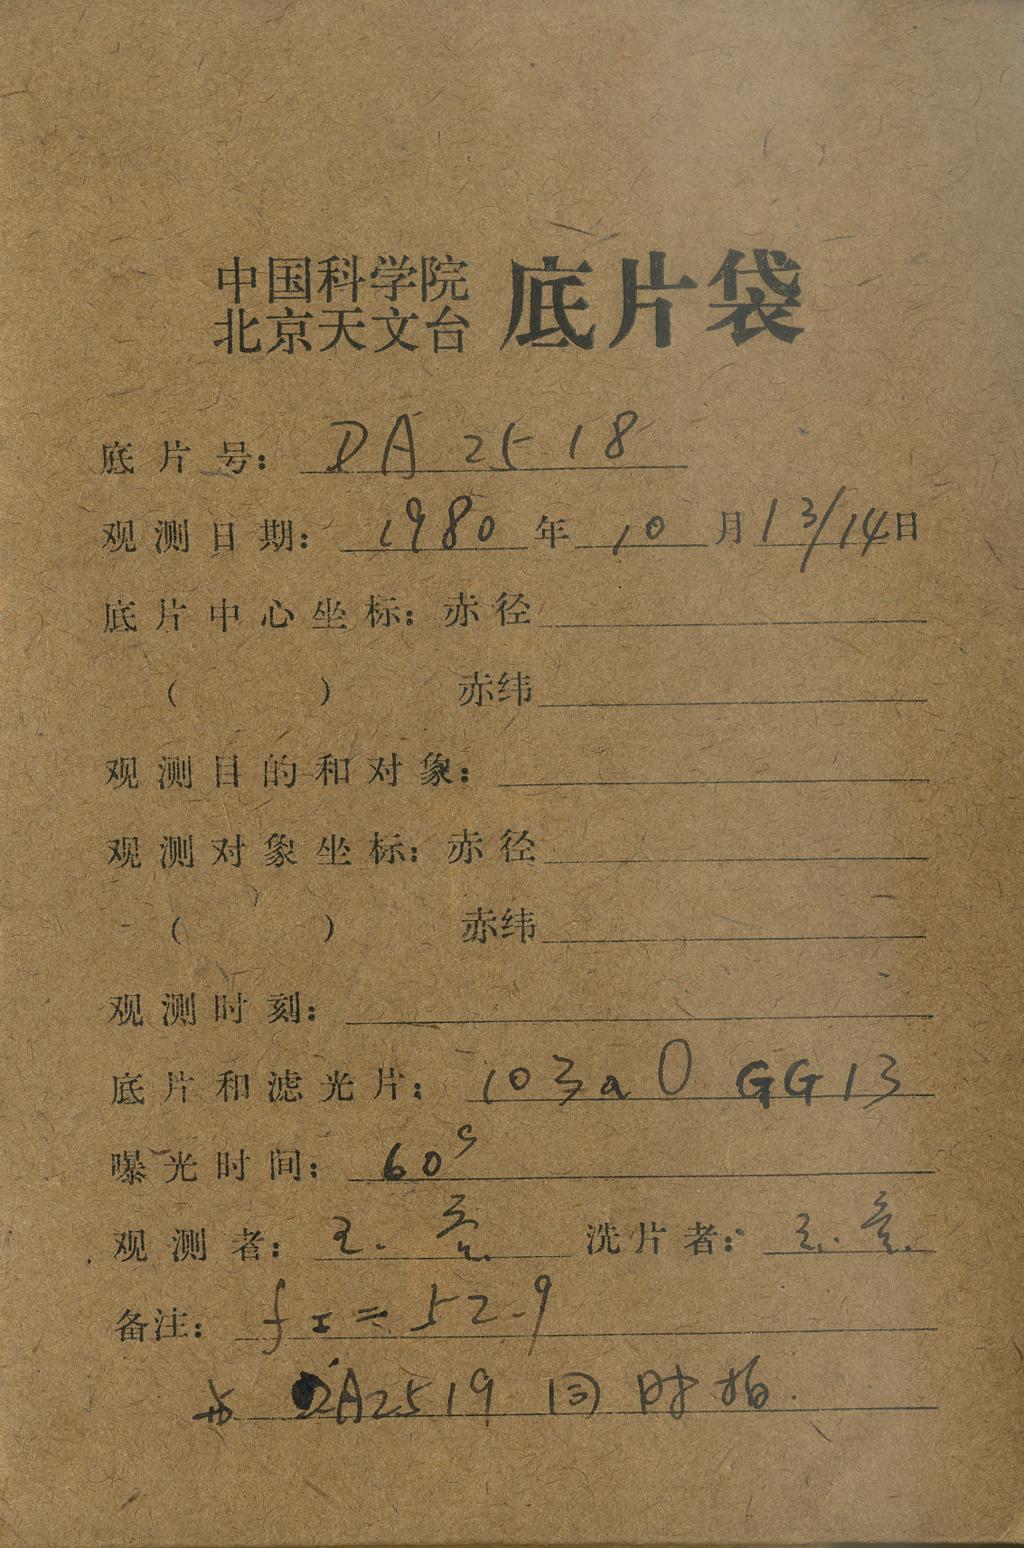 中国科学院
北京天文台
底片袋
底片号: DA 2518
观测日期: 1980 年 10 月 13/14 日
底片中心坐标: 赤径
( ) 赤纬
观测目的和对象:
观测对象坐标: 赤径
( ) 赤纬
观测时刻:
底片和滤光片: 103a O GG13
曝光时间: 60s
观测者: 洗片者:
备注: f I = 52.9
与 DA2519 同时拍.